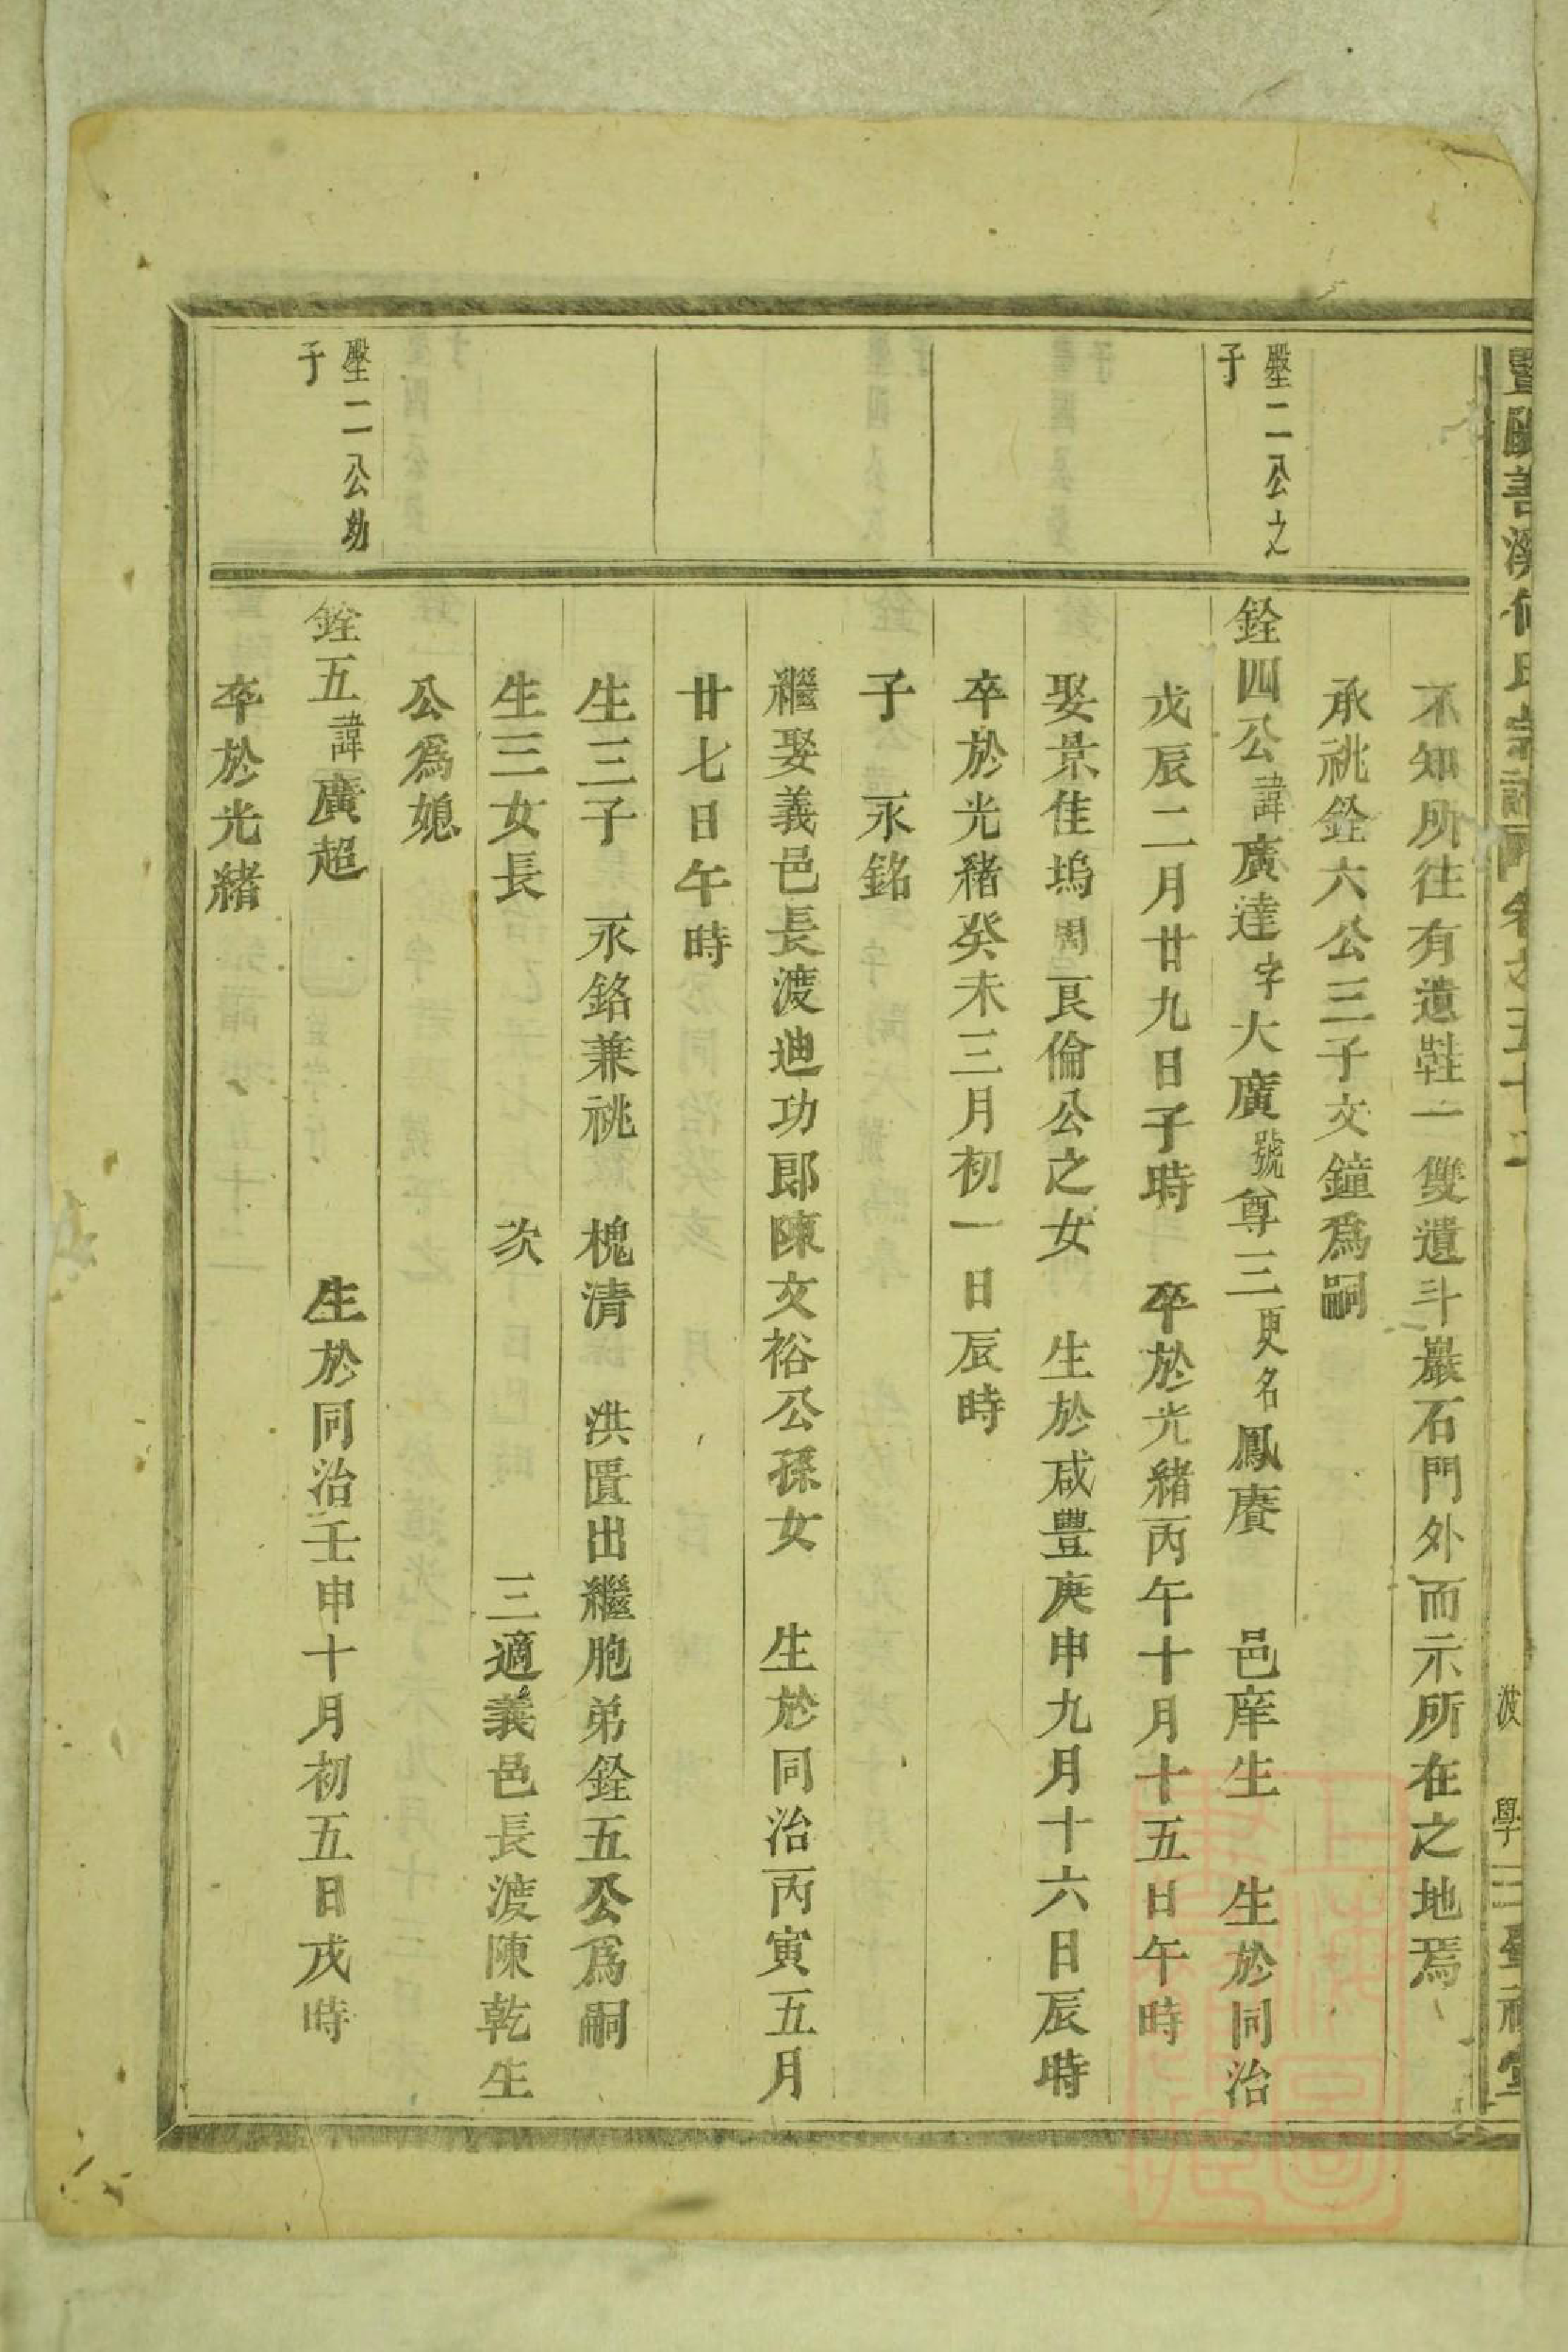 不知所往有遺鞋一雙遺斗巖石門外而示所在之地焉
承祧銓六公三子文鐘爲嗣
塈二公之
子
銓四公諱廣達字大廣號尊三更名鳳賡 邑庠生 生於同治
戊辰二月廿九日子時 卒於光緒丙午十月十五日午時
娶景住塢周良倫公之女 生於咸豐庚申九月十六日辰時
卒於光緒癸未三月初一日辰時
子 永銘
繼娶義邑長渡迪功郎陳文裕公孫女 生於同治丙寅五月
廿七日午時
生三子 永銘兼祧 槐清 洪匱出繼胞弟銓五公爲嗣
生三女長 次 三適義邑長渡陳乾生
公爲媳
塈二公幼
子
銓五諱廣超 生於同治壬申十月初五日戌時
卒於光緒